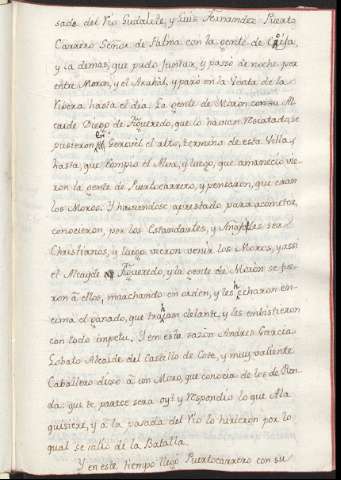 sada del Rio Gudalete, y Luis Fernandez Puerto
Carrero Señor de Palma con la gente de Ecija,
y la demas, que pudo juntar, y passò de noche por
entre Moron, y el Arahàl, y parò en la Venta de la
Rivera hasta el dia. La gente de Moron con su Al-
caide Diego de Figueredo, que lo havian
pusieron en el alto, termino de esta Villa, y
hasta, que rompio el Alva, y luego, que amaneciò vie-
ron la gente de Puertocarrero, y pensaron, que eran
los Moros. Y haviendose aprestado para acometer,
conocieron, por los Estandartes, y ser
Christianos, y luego vieron venir los Moros, y assi
el Alcayde Figueredo, y la gente de Moron se fue-
ron à ellos, marchando en orden, y les echaron en-
cima el ganado, que trahian delante, y les embistieron
con todo impetu. Y en esta sazon Andres Garcia
Lobato Alcaide del Castillo de Cote, y muy valiente
Caballero dixo à un Moro, que conocia de los de Ron-
da: que te parece sera oy? y respondio lo que Alla
quisiere, y à la pasada del Rio lo hirieron por lo
qual se saliò de la Batalla.
Y en este tiempo llegò Puertocarrero con su